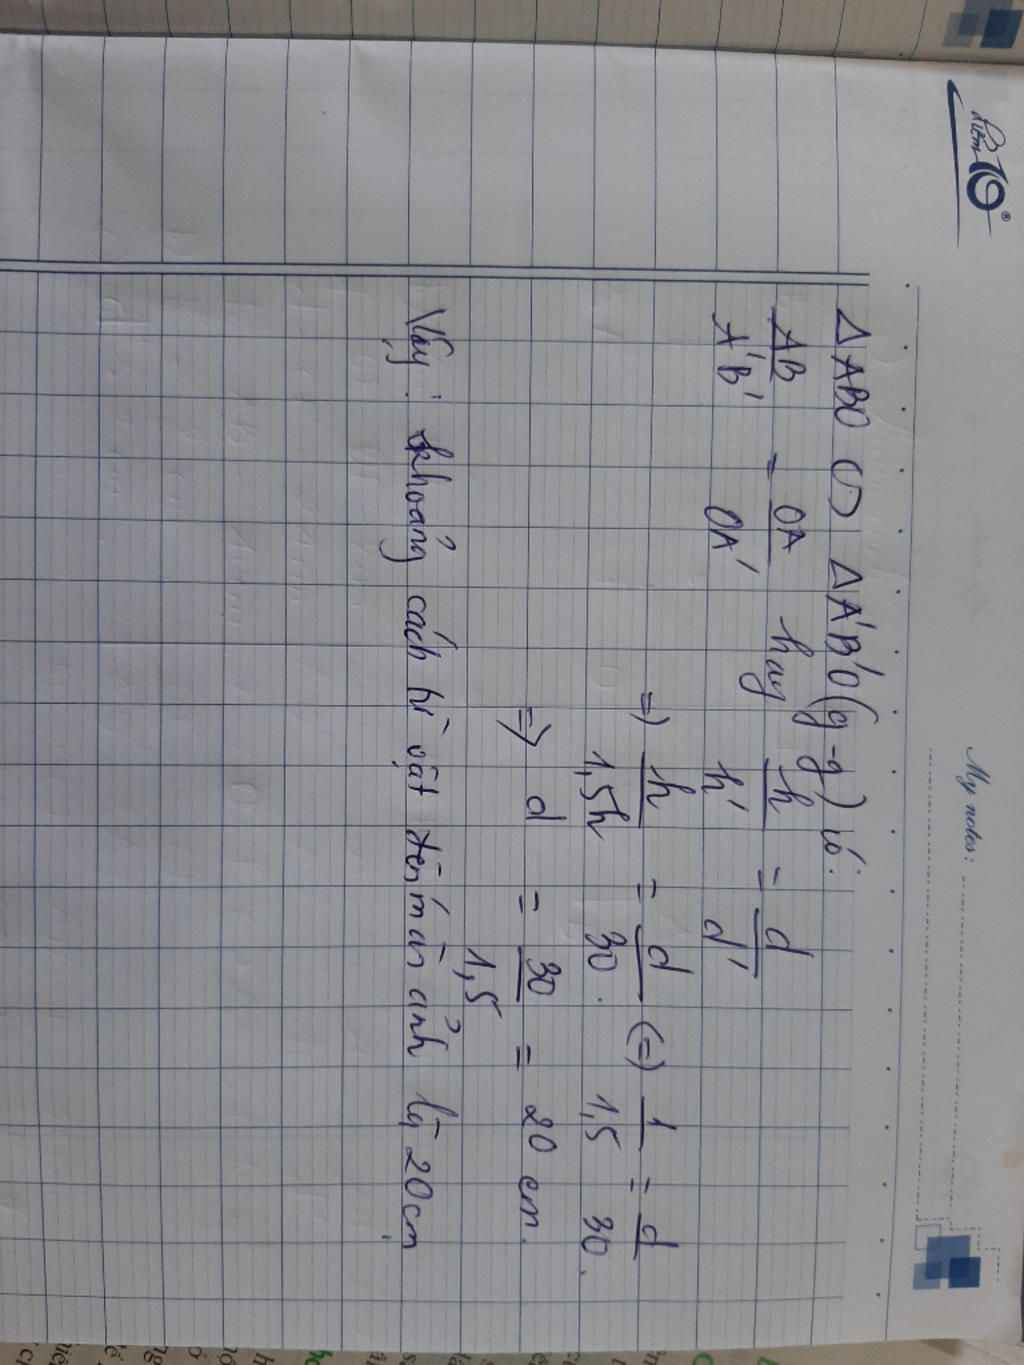 Điểm 10®
My notes:
Δ ABO ∽ Δ A'B'O (g-g) có:
AB/A'B' = OA/OA' hay h/h' = d/d'
=> h/1,5h = d/30. (=) 1/1,5 = d/30.
=> d = 30/1,5 = 20 cm.
Vậy: khoảng cách từ vật đến màn ảnh là 20cm.